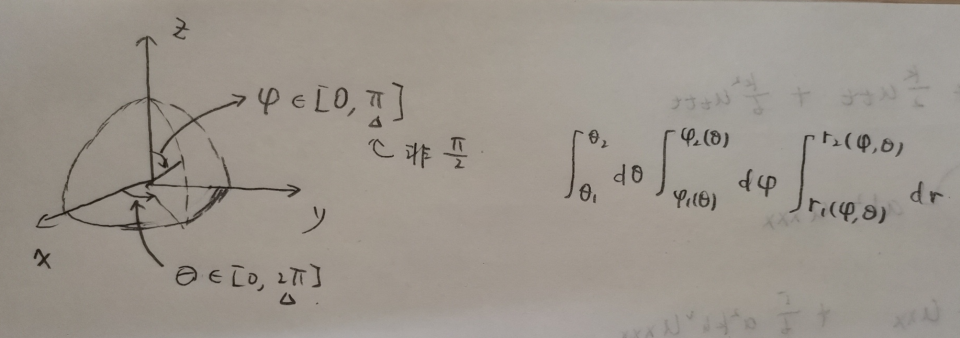 z
φ ∈ [0, π]
非 π/2
x
y
θ ∈ [0, 2π]
∫_{θ₁}^{θ₂} dθ ∫_{φ₁(θ)}^{φ₂(θ)} dφ ∫_{r₁(φ,θ)}^{r₂(φ,θ)} dr